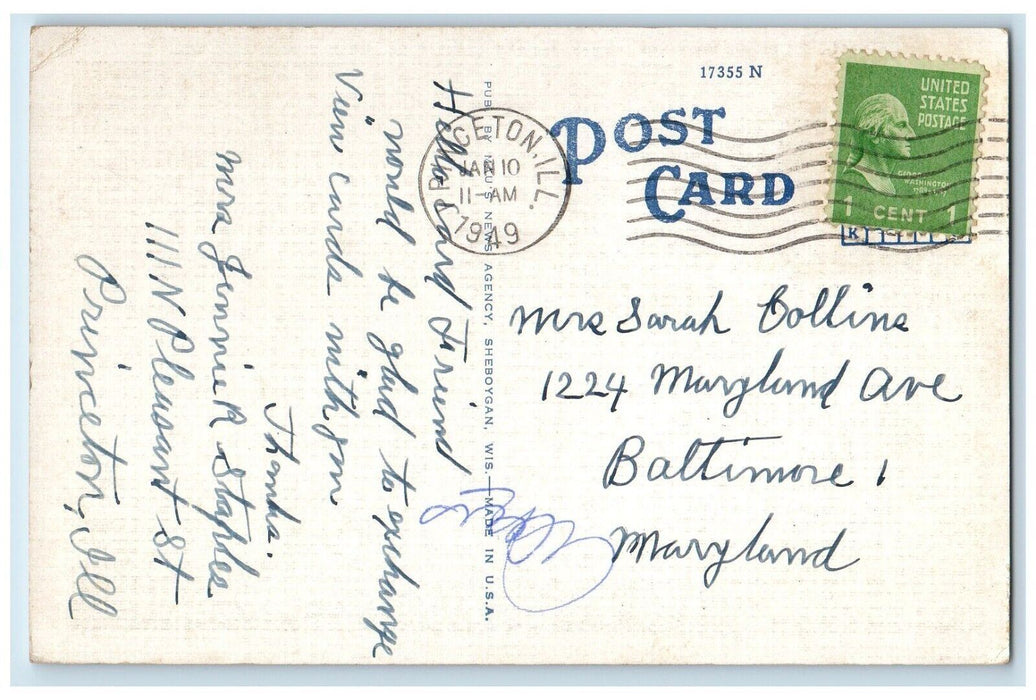 17355 N
POST
CARD
UNITED
STATES
POSTAGE
GEORGE
WASHINGTON
1 CENT 1
PRINCETON, ILL.
JAN 10
11-AM
1949
Mrs Sarah Collins
1224 Maryland Ave
Baltimore 1
Maryland
PUB. BY NEU'S NEWS AGENCY, SHEBOYGAN, WIS.—MADE IN U.S.A.
Hello Card Friend
would be glad to exchange
View cards with you
Thanks.
Mrs Jennie R Staples
111 N Pleasant St
Princeton, Ill